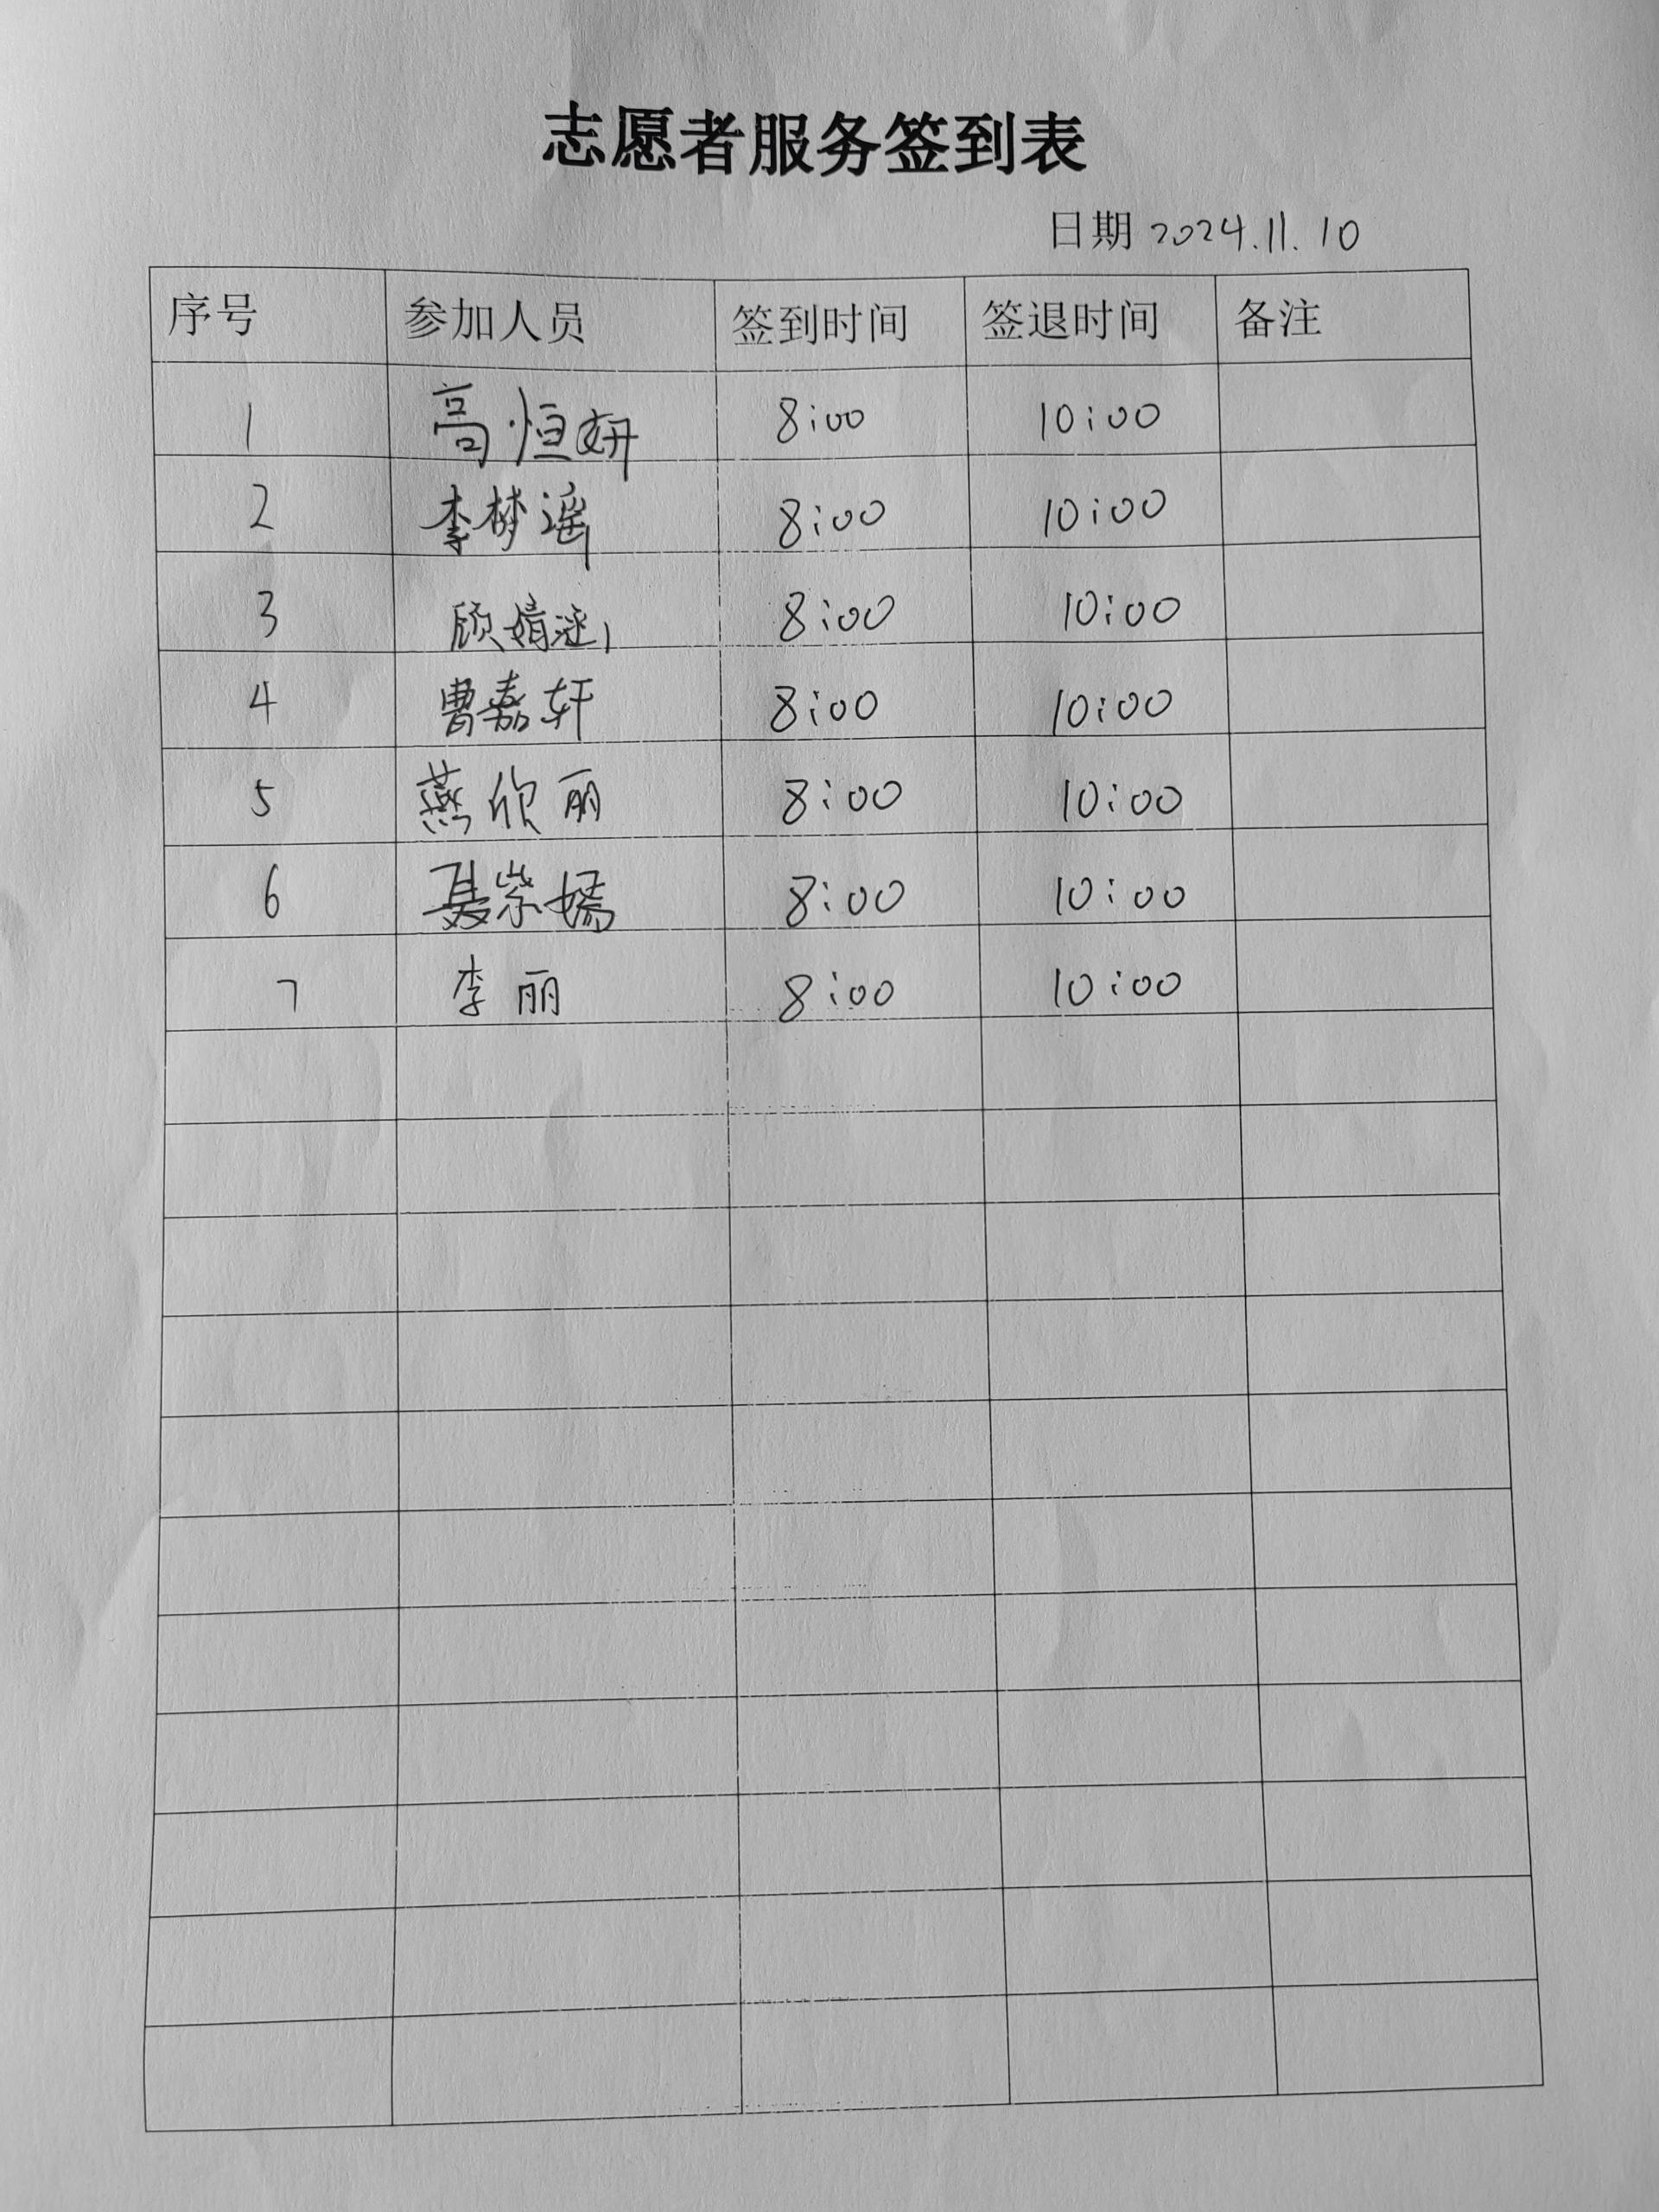 志愿者服务签到表
日期 2024.11.10
序号 参加人员 签到时间 签退时间 备注
1 高恒妍 8:00 10:00
2 李梦谣 8:00 10:00
3 顾婧涵 8:00 10:00
4 曹嘉轩 8:00 10:00
5 燕欣丽 8:00 10:00
6 聂紫嫣 8:00 10:00
7 李丽 8:00 10:00